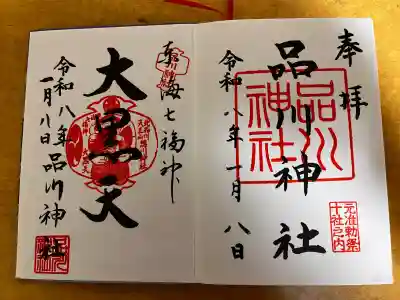 奉拝
品川神社
令和八年一月八日
品川神社
元准勅祭
十社之内
東海七福神
大黒天
令和八年
一月八日
品川神社